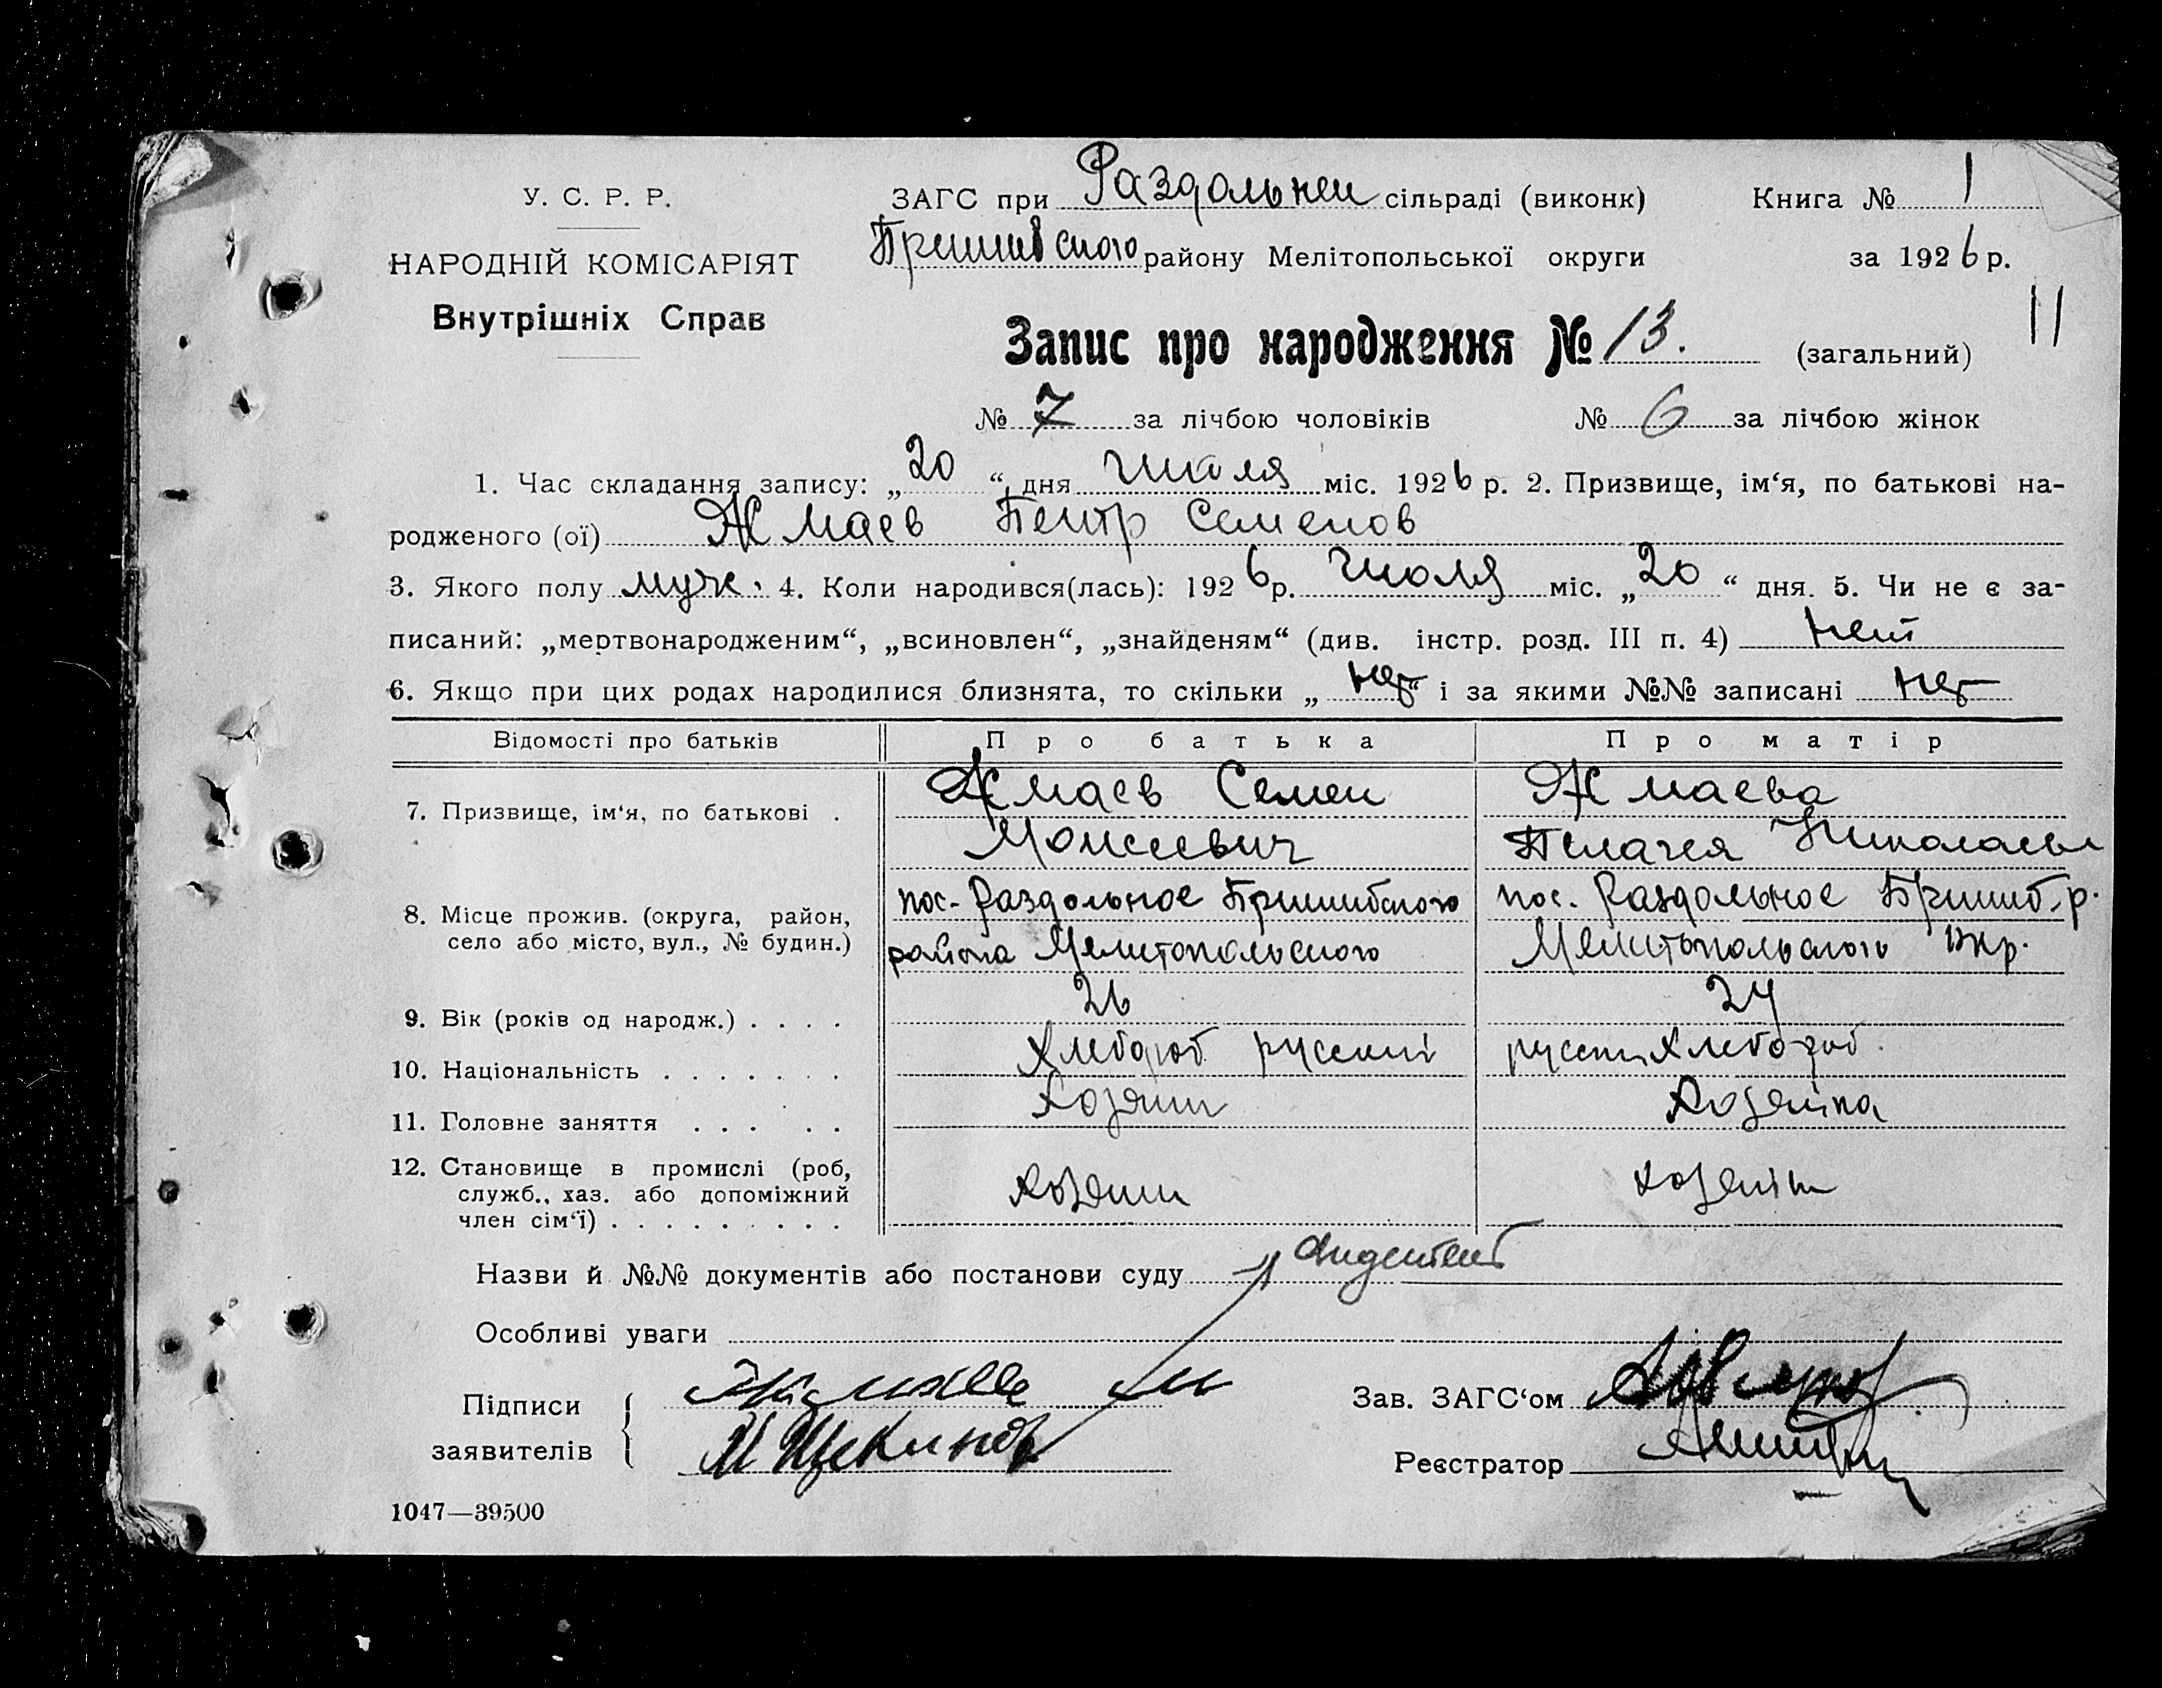 У. С. Р. Р.
НАРОДНІЙ КОМІСАРІЯТ
Внутрішніх Справ
ЗАГС при Раздольней сільраді (виконк) Книга № 1
Пришибского району Мелітопольської округи за 1926 р.
11
Запис про народження № 13. (загальний)
№ 7 за лічбою чоловіків № 6 за лічбою жінок
1. Час складання запису: „20“ дня Июля міс. 1926 р. 2. Призвище, ім‘я, по батькові на-
родженого (ої) Жмаев Петр Семенов
3. Якого полу муж. 4. Коли народився(лась): 1926 р. Июля міс. „20“ дня. 5. Чи не є за-
писаний: „мертвонародженим“, „всиновлен“, „знайденям“ (див. інстр. розд. III п. 4) нет
6. Якщо при цих родах народилися близнята, то скільки „нет“ і за якими №№ записані нет
Відомості про батьків Про батька Про матір
7. Призвище, ім‘я, по батькові . Жмаев Семен Жмаева
Моисеевич Пелагея Николаевн
8. Місце прожив. (округа, район, пос. Раздольное Пришибского пос. Раздольное Пришиб. р.
село або місто, вул., № будин.) района Мелитопольского Мелитопольского Окр.
9. Вік (років од народж.) . . . . 26 24
10. Національність . . . . . . . Хлебороб русский русски Хлебороб.
11. Головне заняття . . . . . Хозяин Хозяйка
12. Становище в промислі (роб,
служб., хаз. або допоміжний Хозяин
член сім‘ї) . . . . . . . . .
Назви й №№ документів або постанови суду
Особливі уваги
Підписи Зав. ЗАГС‘ом
заявителів И Щекинов
Реєстратор
1047—39500